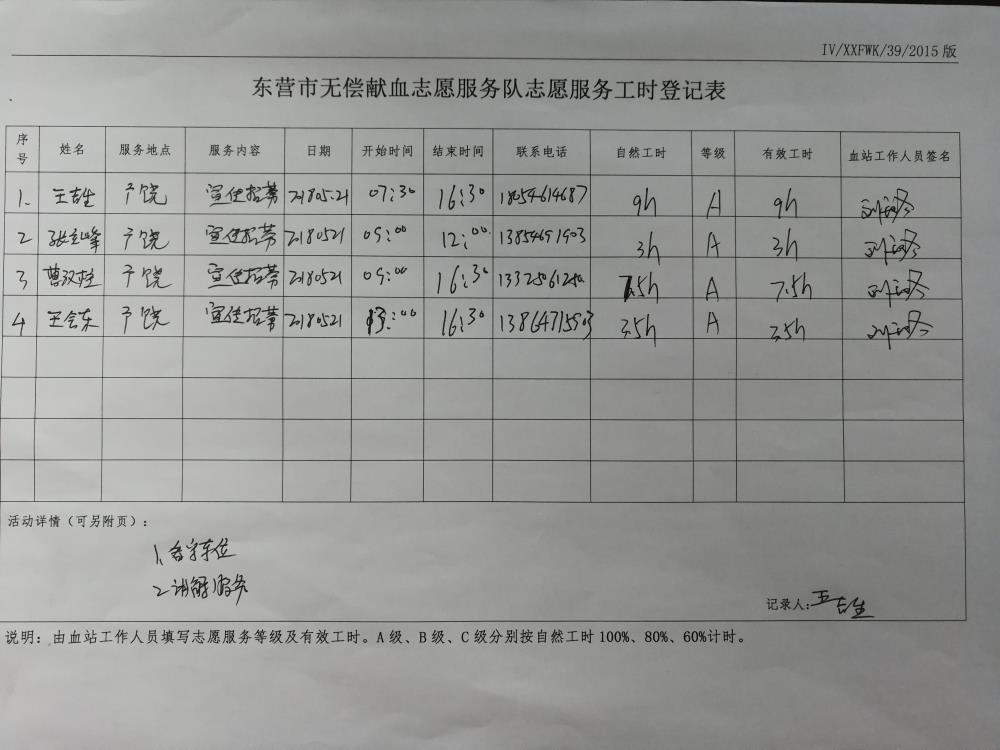 IV/XXFWK/39/2015版
东营市无偿献血志愿服务队志愿服务工时登记表
序号 姓名 服务地点 服务内容 日期 开始时间 结束时间 联系电话 自然工时 等级 有效工时 血站工作人员签名
1. 广饶 宣传招募 2180521 07:30 16:30 18054614687 9h A 9h
2 广饶 宣传招募 2180521 09:00 12:00 13854691903 3h A 3h
3 广饶 宣传招募 2180521 09:00 16:30 7.5h A 7.5h
4 王会东 广饶 宣传招募 2180521 13:00 16:30 13864715903 3.5h A 3.5h
活动详情（可另附页）：
1、看守车位
2、讲解服务
记录人:
说明：由血站工作人员填写志愿服务等级及有效工时。A级、B级、C级分别按自然工时100%、80%、60%计时。